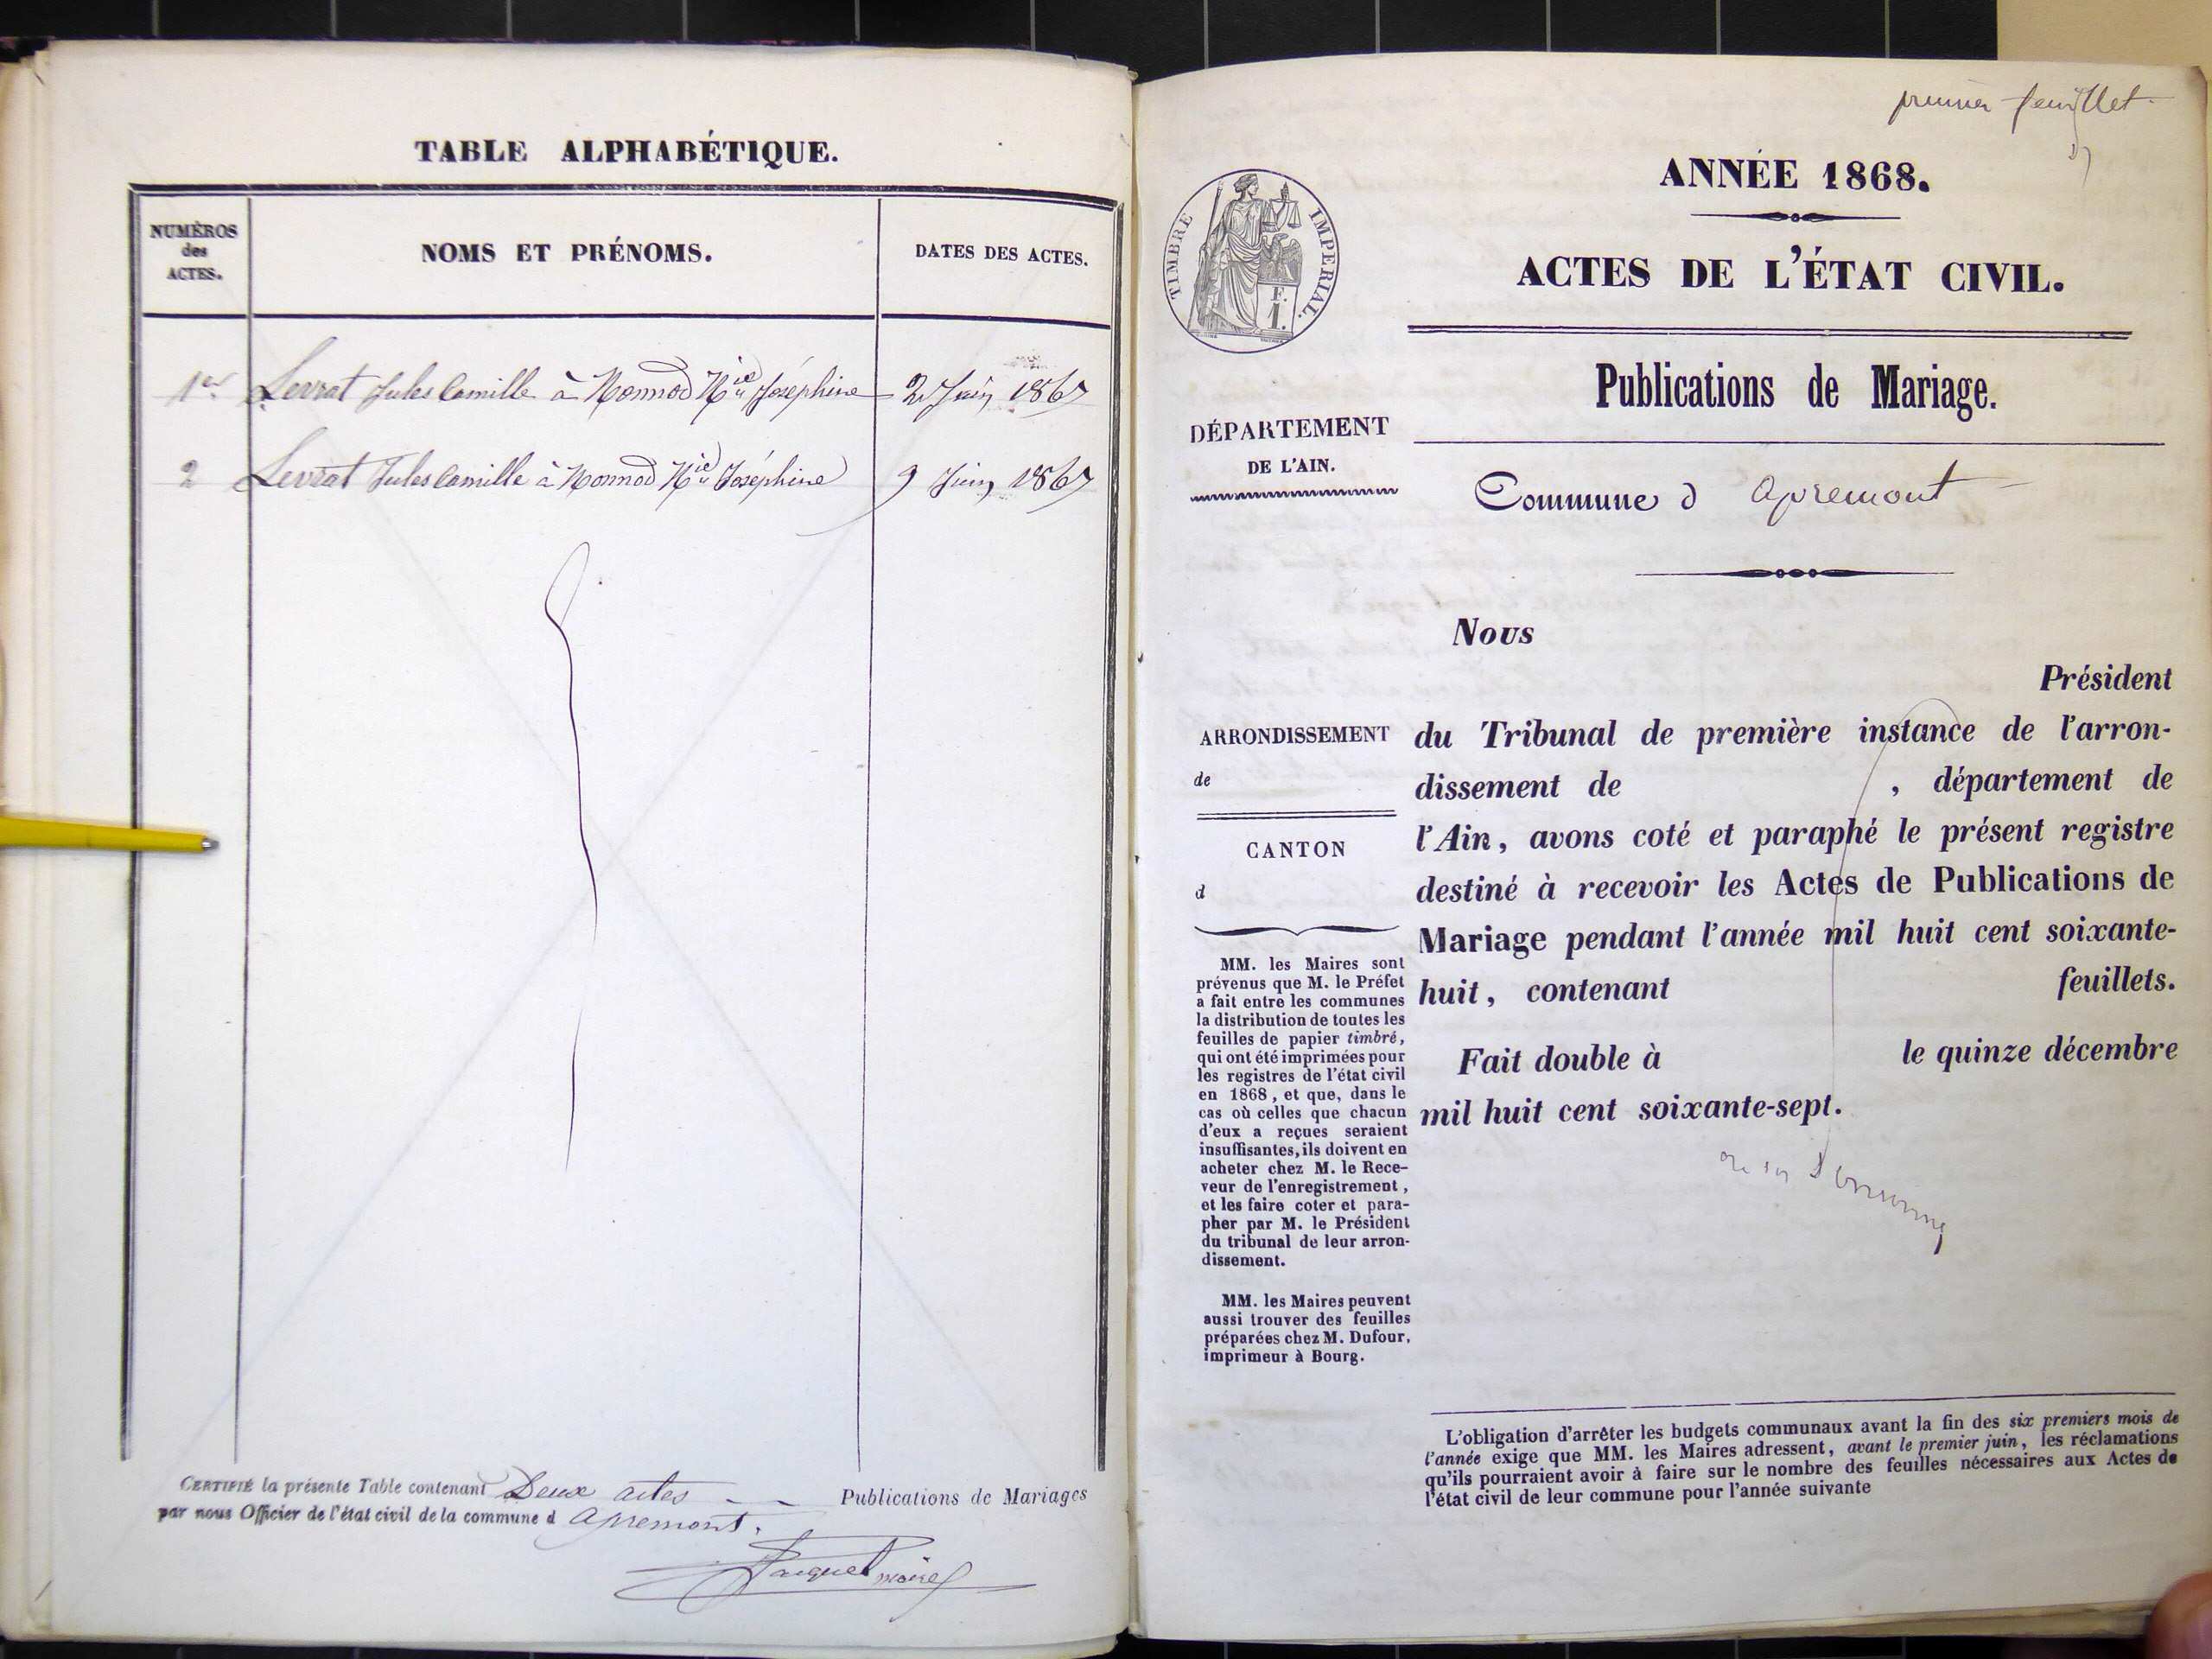 TABLE ALPHABÉTIQUE.
NUMÉROS
des
ACTES.
NOMS ET PRÉNOMS.
DATES DES ACTES.
1er Levrat Jules Camille à Monnod Mie Joséphine 2 Juin 1867
2 Levrat Jules Camille à Monnod Mie Joséphine 9 Juin 1867
CERTIFIÉ la présente Table contenant Deux actes Publications de Mariages
par nous Officier de l'état civil de la commune d Apremont.
maire
premier feuillet
ANNÉE 1868.
TIMBRE IMPERIAL.
F.
1.
ACTES DE L'ÉTAT CIVIL.
Publications de Mariage.
DÉPARTEMENT
DE L'AIN.
Commune d apremont
Nous
Président
du Tribunal de première instance de l'arron-
dissement de , département de
l'Ain, avons coté et paraphé le présent registre
destiné à recevoir les Actes de Publications de
Mariage pendant l'année mil huit cent soixante-
huit, contenant feuillets.
Fait double à le quinze décembre
mil huit cent soixante-sept.
ARRONDISSEMENT
de
CANTON
d
MM. les Maires sont
prévenus que M. le Préfet
a fait entre les communes
la distribution de toutes les
feuilles de papier timbré,
qui ont été imprimées pour
les registres de l'état civil
en 1868, et que, dans le
cas où celles que chacun
d'eux a reçues seraient
insuffisantes, ils doivent en
acheter chez M. le Rece-
veur de l'enregistrement,
et les faire coter et para-
pher par M. le Président
du tribunal de leur arron-
dissement.
MM. les Maires peuvent
aussi trouver des feuilles
préparées chez M. Dufour,
imprimeur à Bourg.
L'obligation d'arrêter les budgets communaux avant la fin des six premiers mois de
l'année exige que MM. les Maires adressent, avant le premier juin, les réclamations
qu'ils pourraient avoir à faire sur le nombre des feuilles nécessaires aux Actes de
l'état civil de leur commune pour l'année suivante